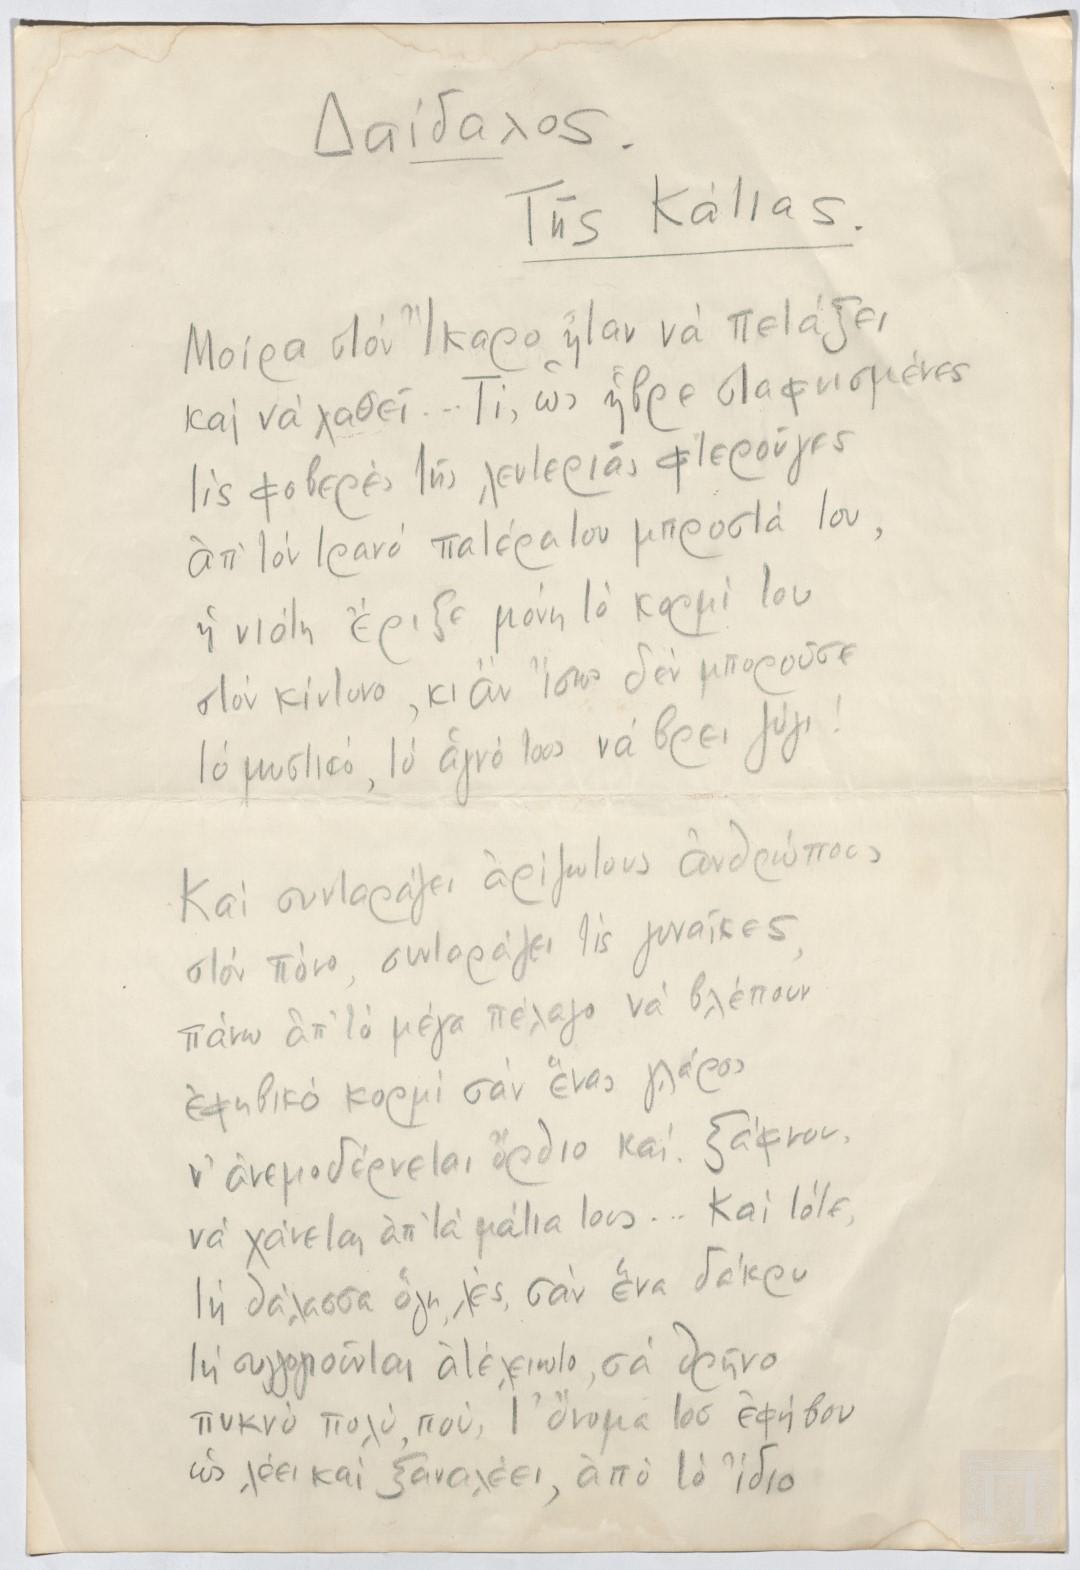 Δαίδαλος.
Τῆς Κάτιας.
Μοίρα στόν Ἴκαρο ἦταν νά πετάξει
καί νά χαθεῖ... Τί, ὡς ἦβρε σταφνισμένες
τίς φοβερές τῆς λευτεριᾶς φτεροῦγες
ἀπ' τόν τρανό πατέρα του μπροστά του,
ἡ νιότη ἔριξε μόνη τό κορμί του
στόν κίντυνο, κι ἄν ἴσως δέν μποροῦσε
τό μυστικό, τό ἁγνό τους νά βρει ζύγι!
Καί συνταράζει ἀρίζωτους ἀνθρώπους
στόν πόνο, συνταράζει τίς γυναῖκες,
πάνω ἀπ' τό μέγα πέλαγο νά βλέπουν
ἐφηβικό κορμί σάν ἕνας γλάρος
ν' ἀνεμοδέρνεται ὄρθιο καί. ξάφνου,
νά χάνεται ἀπ' τά μάτια τους... Καί τότε,
τή θάλασσα ὅλη, λές, σάν ἕνα δάκρυ
τή συλλογιοῦνται ἀτέλειωτο, σά θρῆνο
πυκνό πολύ, πού, τ' ὄνομα τοσ ἐφήβου
ὡς λέει καί ξαναλέει, ἀπό τό ἴδιο